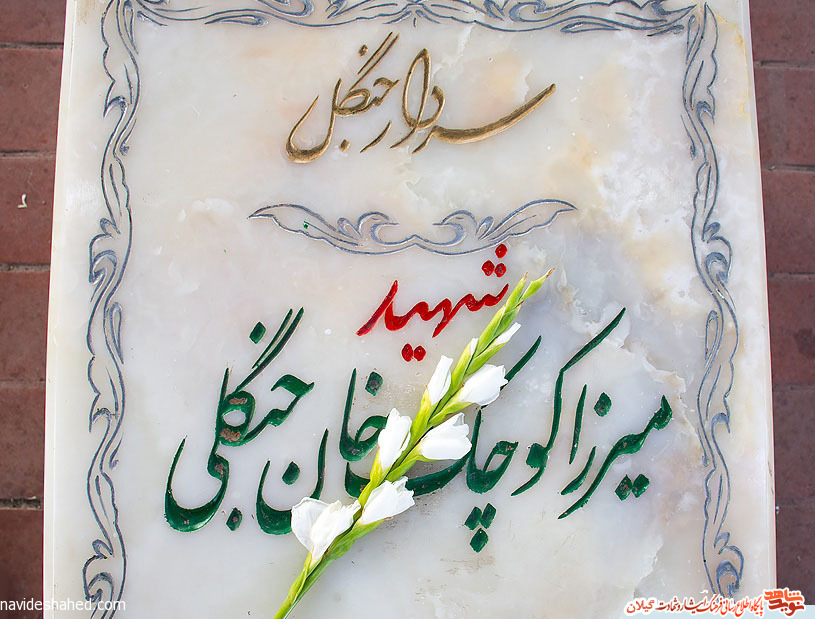 سردار جنگل
شهید
میرزا کوچک خان جنگلی
navideshahed.com
نوید شاهد
پایگاه اطلاع رسانی فرهنگ ایثار و شهادت گیلان